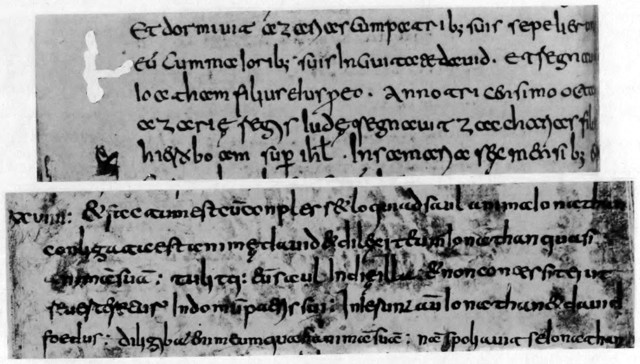 Et dormiuit azarias cum patribꝫ suis sepelier
eū cum maioribꝫ suis In ciuitate dauid. et regna
Ioatham filius eius pro eo. Anno tricensimo octa
azarię regis Iudę regnauit zaccharias fil
hieroboam sup̄ ihl̄. In samaria sex mensibꝫ
xviiii: & factum est cū conplesset loqui ad saul anima Ionathan
conligata est animę dauid & dilexit eum Ionathan quasi
animā suā: tulitq: eū saul In die illa: & non concessit ei ut
reuerteretur In domū patris sui: Inierunt aū Ionathan & dauid
foedus: diligebat enim eum quasi animā suā: nā spoliauit se Ionathan